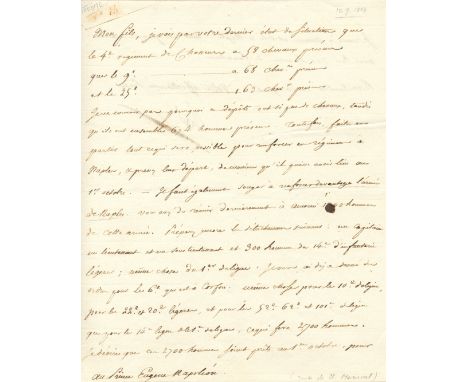 10 7
Mon fils, je vois par votre dernier état de situation que
le 4e régiment de Chasseurs a 58 chevaux présens
que le 9e a 68 chev. prés.
et le 25e 163 chev. prés.
Je ne conçois pas pourquoi ces dépôts ont si peu de chevaux, tandis
qu'ils ont ensemble 604 hommes présens. Toutefois, faites en
partir tout ce qui sera possible pour renforcer ces régimens à
Naples, et pressez leur départ, de manière qu'il puisse avoir lieu au
1er octobre. — Il faut également songer à renforcer davantage l'armée
de Naples. Vous avez dernièrement hommes
de cette armée. Préparez encore le détachement suivant: un capitaine
un lieutenant et un sous lieutenant et 300 hommes du 14e d'infanterie
légère; même chose du 1er de ligne. Je vous ai déjà donné des
ordres pour les 6e qui est à Corfou. même chose pour le 10e de ligne,
pour les 22e et 20e légère, et pour les 52e 62e et 101e de ligne
que pour le 14e léger et le 1er de ligne, ce qui fera 2700 hommes.
Je désire que ces 2700 hommes soient prêts au 1er octobre, pour
Au Prince Eugène Napoléon
(main de M.